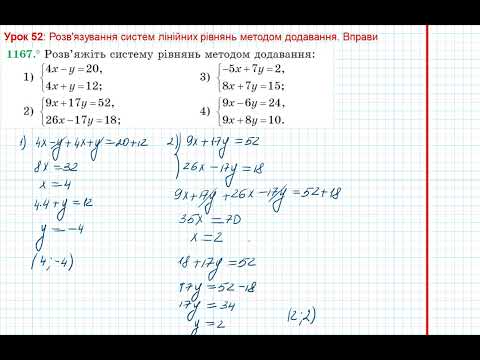 Урок 52: Розв'язування систем лінійних рівнянь методом додавання. Вправи
1167.° Розв'яжіть систему рівнянь методом додавання:
1) {4x − y = 20,
4x + y = 12;
3) {−5x + 7y = 2,
8x + 7y = 15;
2) {9x + 17y = 52,
26x − 17y = 18;
4) {9x − 6y = 24,
9x + 8y = 10.
1) 4x − y + 4x + y = 20 + 12
8x = 32
x = 4
4·4 + y = 12
y = −4
(4; −4)
2) {9x + 17y = 52
26x − 17y = 18
9x + 17y + 26x − 17y = 52 + 18
35x = 70
x = 2
18 + 17y = 52
17y = 52 − 18
17y = 34
y = 2
(2; 2)